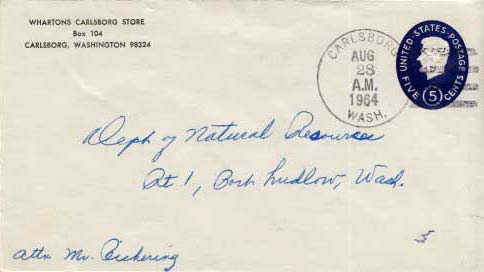 WHARTONS CARLSBORG STORE
Box 104
CARLSBORG, WASHINGTON 98324
CARLSBORG
AUG
28
A.M.
1964
WASH.
UNITED STATES POSTAGE
FIVE 5 CENTS
Dept of Natural Resources
Rt 1, Port Ludlow, Wash.
attn Mr. Pickering